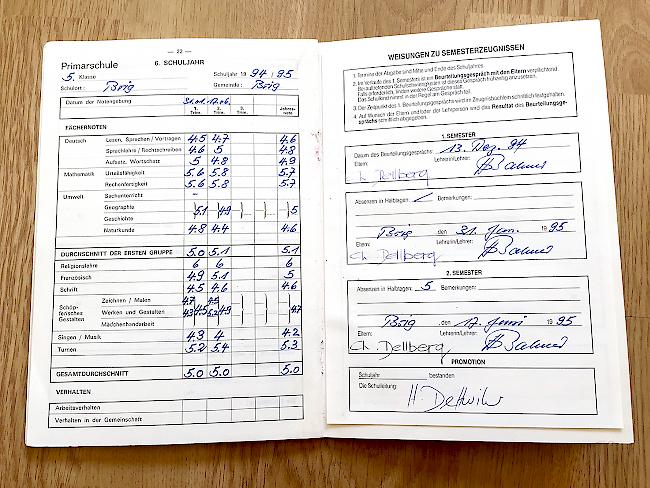 — 22 —
Primarschule 6. SCHULJAHR
5. Klasse Schuljahr 19 94/95
Schulort: Brig Gemeinde: Brig
Datum der Notengebung 31.01. 17.06.
1. Trim. 2. Trim. 3. Trim. Jahresnote
FÄCHERNOTEN
Deutsch Lesen, Sprechen / Vortragen 4.5 4.7 4.6
Sprachlehre / Rechtschreiben 4.6 5 4.8
Aufsatz, Wortschatz 5 4.8 4.9
Mathematik Urteilsfähigkeit 5.6 5.8 5.7
Rechenfertigkeit 5.6 5.8 5.7
Umwelt Sachunterricht –
Geographie
Geschichte
5.1 4.9 5
Naturkunde 4.8 4.4 4.6
DURCHSCHNITT DER ERSTEN GRUPPE 5.0 5.1 5.1
Religionslehre 6 6 6
Französisch 4.9 5.1 5
Schrift 4.5 4.6 4.6
Schöpferisches Gestalten
Zeichnen / Malen 4.7 4.5
Werken und Gestalten 4.3 4.5 5.2 4.9 4.7
Mädchenhandarbeit
Singen / Musik 4.3 4 4.2
Turnen 5.2 5.4 5.3
GESAMTDURCHSCHNITT 5.0 5.0 5.0
VERHALTEN
Arbeitsverhalten
Verhalten in der Gemeinschaft
WEISUNGEN ZU SEMESTERZEUGNISSEN
1. Termine der Abgabe sind Mitte und Ende des Schuljahres.
2. Im Verlaufe des 1. Semesters ist ein Beurteilungsgespräch mit den Eltern verpflichtend.
Bei auftretenden Schulschwierigkeiten ist dieses Gespräch frühzeitig anzusetzen.
Falls erforderlich, finden weitere Gespräche statt.
Das Schulkind nimmt in der Regel am Gespräch teil.
3. Der Zeitpunkt des Beurteilungsgesprächs wird im Zeugnisbüchlein schriftlich festgehalten.
4. Auf Wunsch der Eltern und/oder der Lehrperson wird das Resultat des Beurteilungsgesprächs schriftlich abgegeben.
1. SEMESTER
Datum des Beurteilungsgesprächs: 13. Dez. 94
Eltern: Lehrerin/Lehrer:
Ch. Dellberg
Absenzen in Halbtagen: Bemerkungen:
Brig, den 31. Jan. 1995
Eltern: Lehrerin/Lehrer:
Ch. Dellberg
2. SEMESTER
Absenzen in Halbtagen: 5 Bemerkungen:
Brig, den 17. Juni 1995
Eltern: Lehrerin/Lehrer:
Ch. Dellberg
PROMOTION
Schuljahr bestanden
Die Schulleitung: